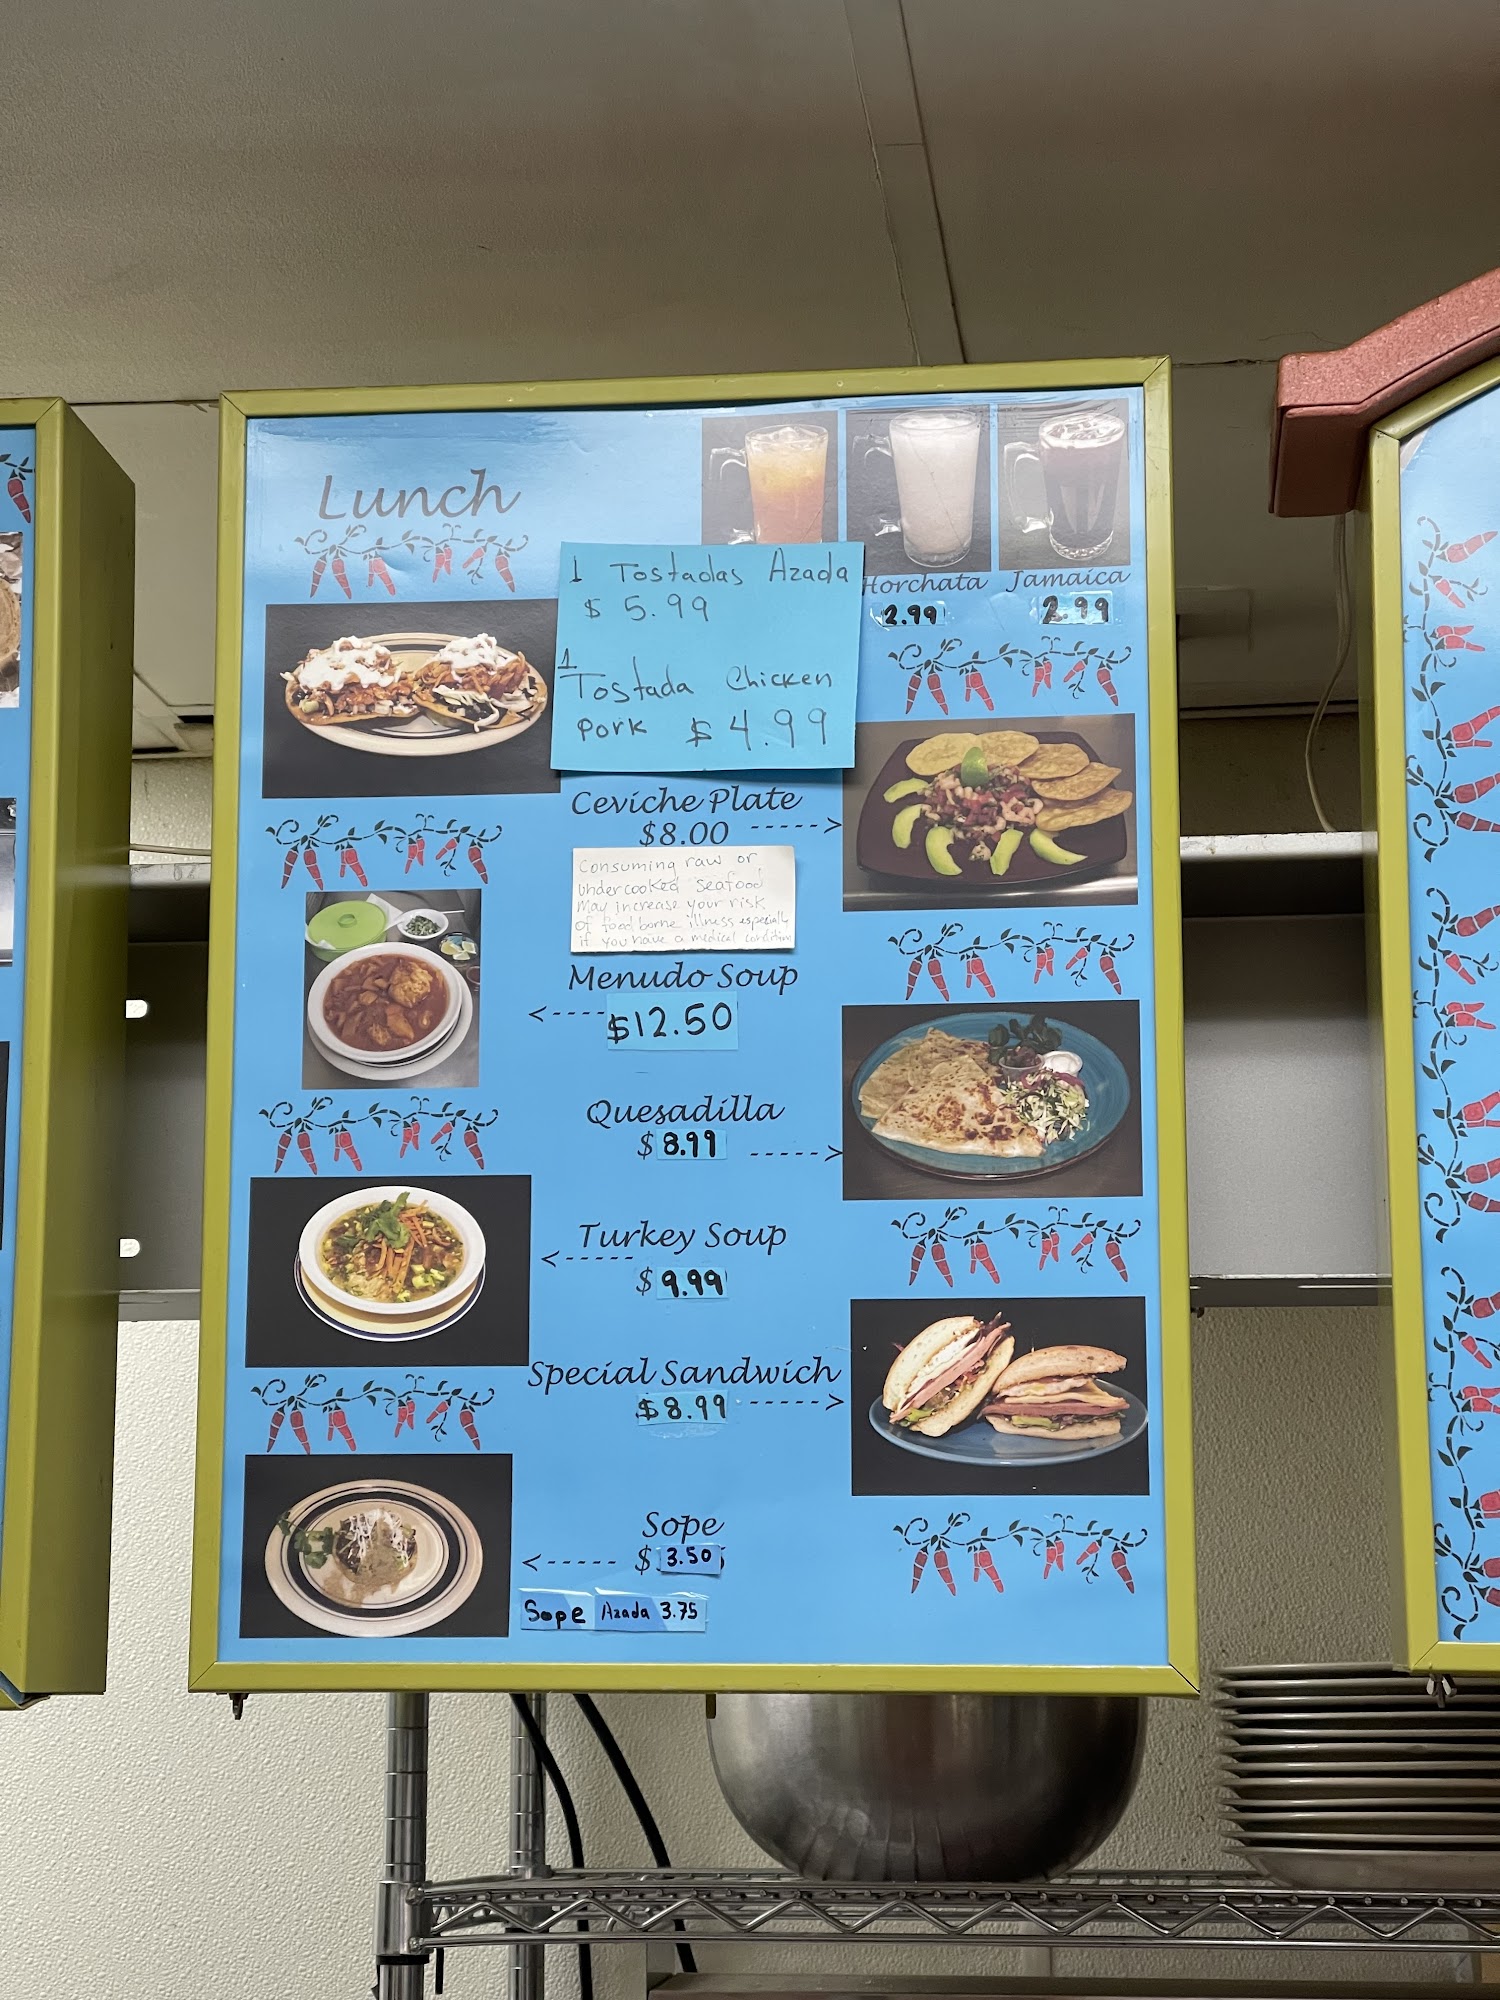 Lunch
1 Tostadas Azada
$ 5.99
1
Tostada Chicken
Pork $ 4.99
Horchata
2.99
Jamaica
2.99
Ceviche Plate
$8.00 ----->
Consuming raw or
undercooked seafood
May increase your risk
of foodborne illness especially
if you have a medical condition
Menudo Soup
<----$12.50
Quesadilla
$8.99 ----->
Turkey Soup
<-----
$9.99
Special Sandwich
$8.99 ----->
Sope
<----- $3.50
Sope Azada 3.75